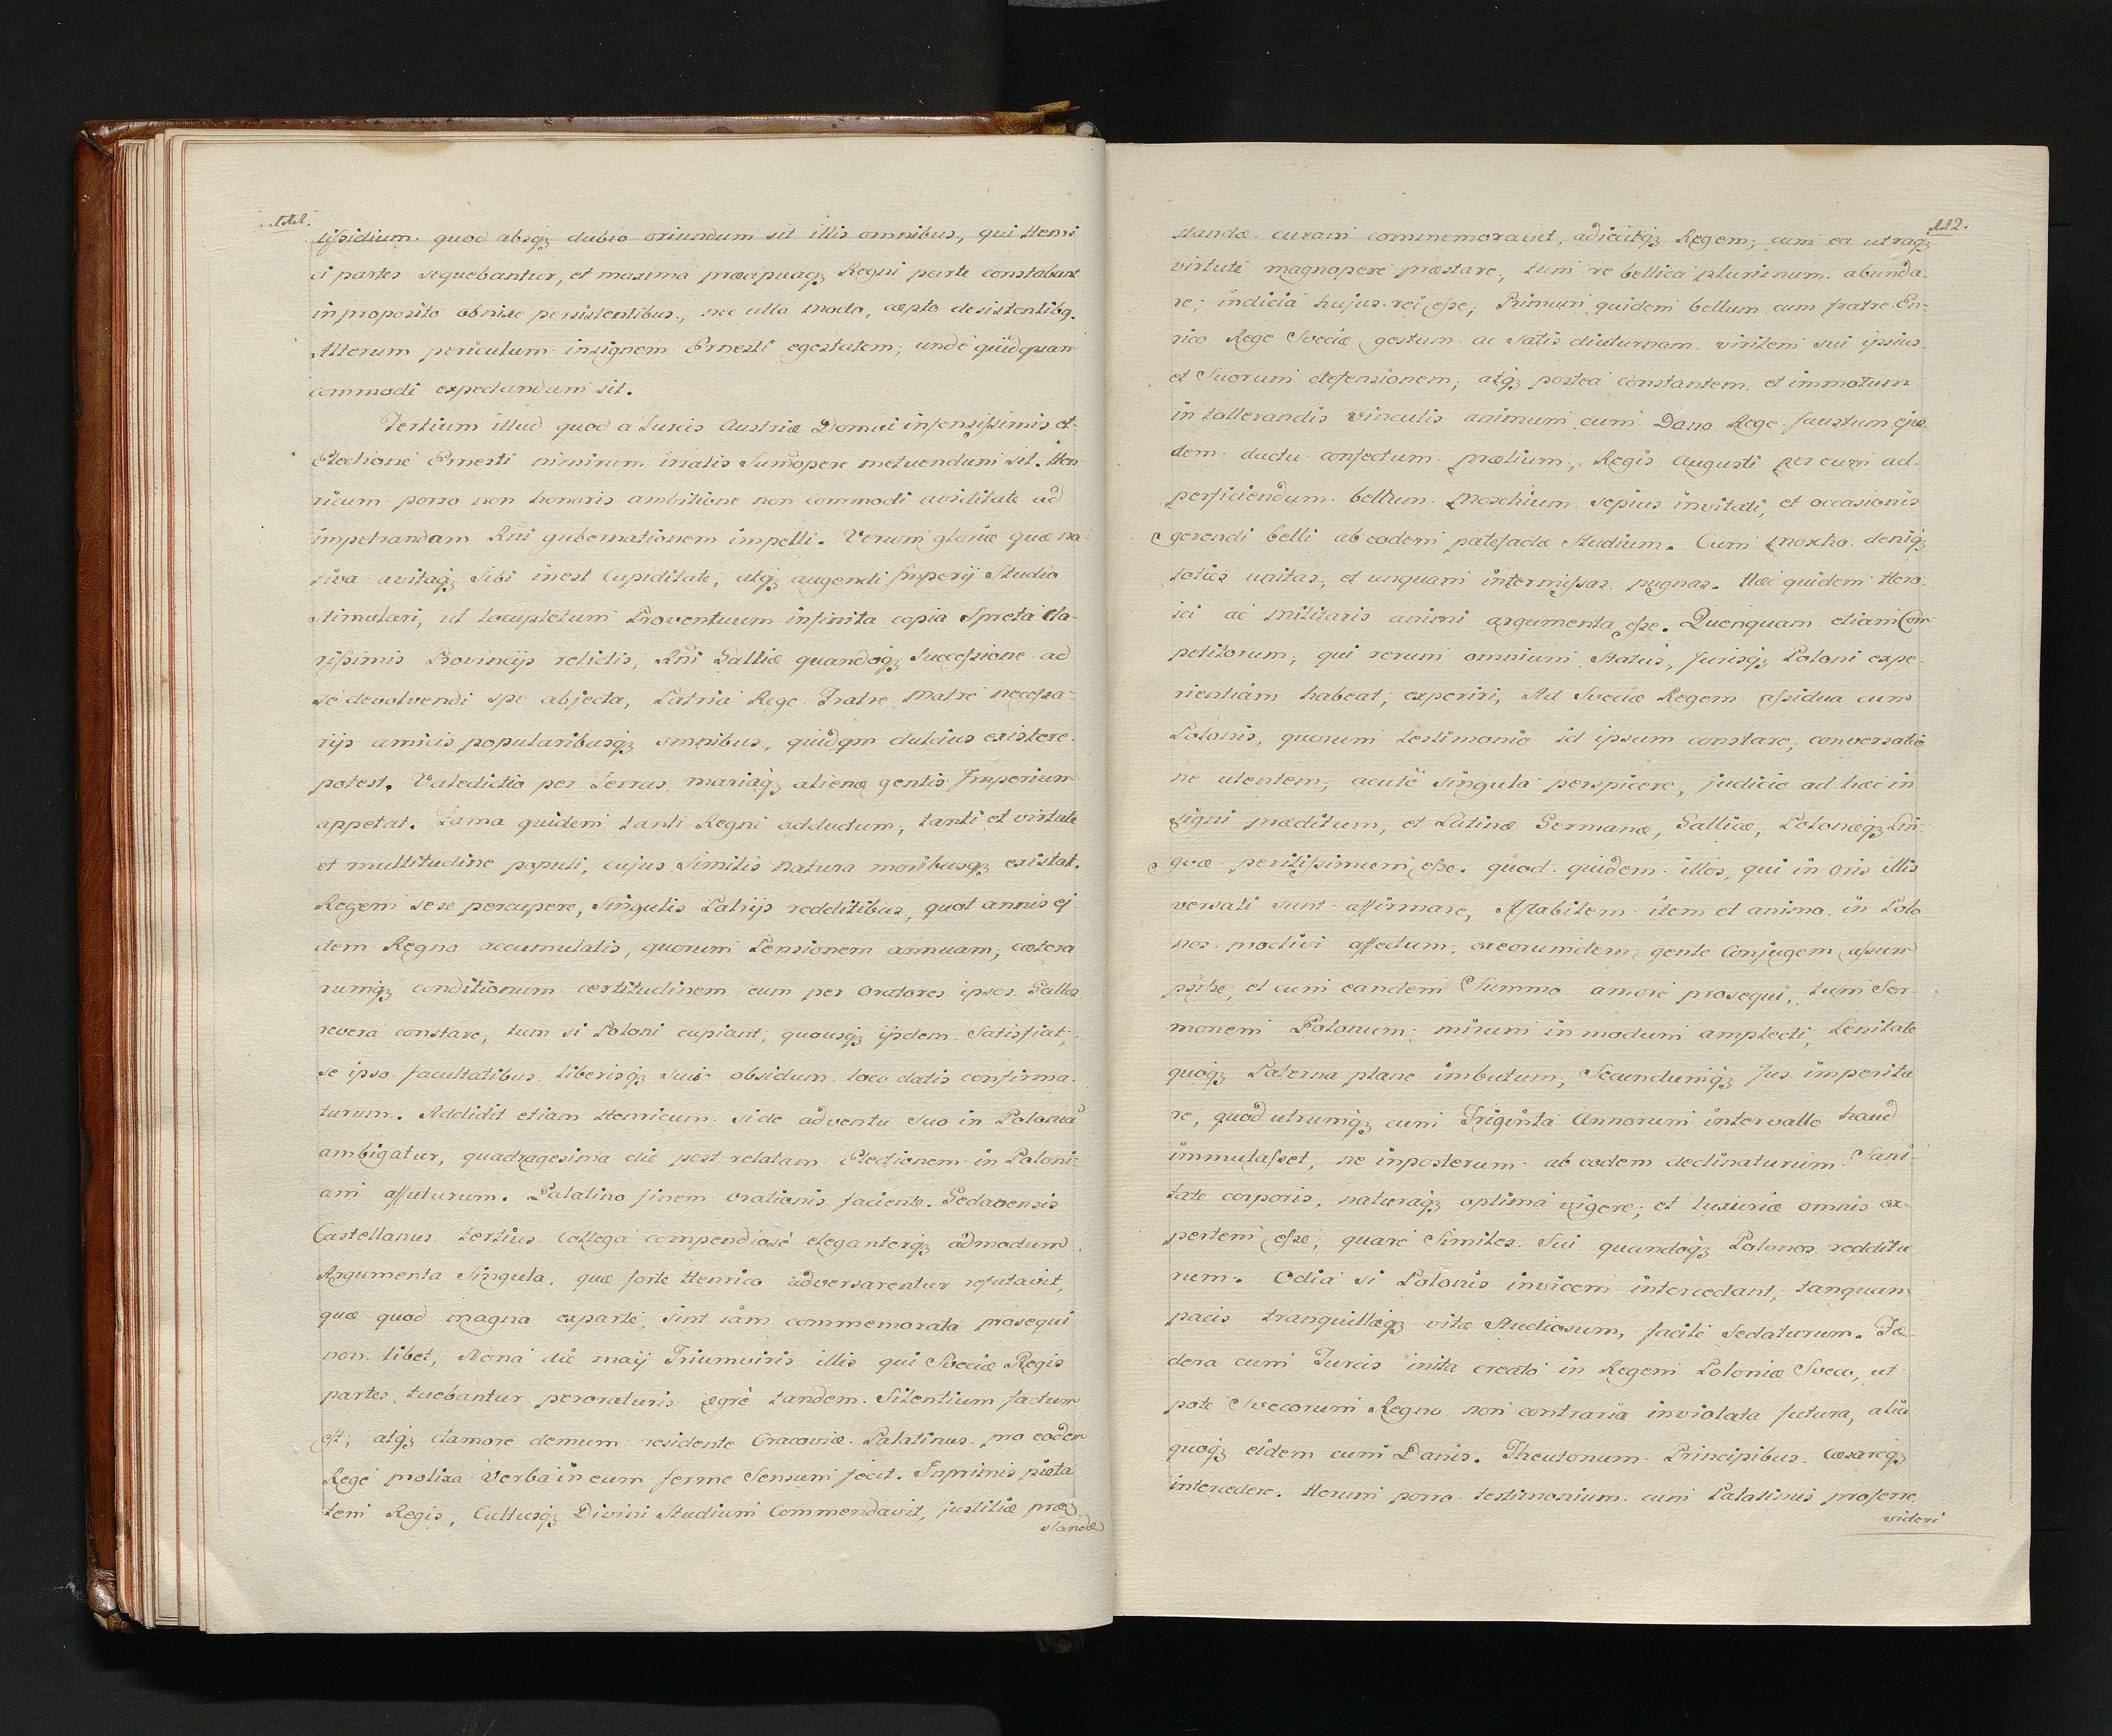 111.
tissidium quod absqꝫ dubio oriundum sit illis omnibus, qui Henri
ci partes sequebantur, et maxima præcipuaqꝫ Regni parte constabant
in proposito obnixe persistentibus, nec ullo modo, cæpto desistentibꝗ.
Alterum periculum insignem Ernesti egestatem; unde quidquan
commodi expectandum sit.
Tertium illud quod a Turcis Austriæ Domui infensissimis et
Electione Ernesti nimirum irratis Sumopere metuendum sit. Hen
ricum porro non honoris ambitione non commodi aviditate ad
impetrandam Rni gubernationem impelli. Verum gloriæ quæ na
tiva avitaqꝫ Sibi inest Cupiditate, atqꝫ augendi Imperij Studio
stimulari, ut locupletum Proventuum infinita copia Spreta Cla-
rissimis Provincijs relictis, Rni Galliæ quandoqꝫ Successione ad
se devolvendi spe abjecta, Patria Rege Fratre Matre necessa-
rijs amicis popularibusqꝫ omnibus, quidqm dulcius existere
potest. Valedictio per Terras mariaqꝫ alienæ gentis Imperium
appetat. Fama quidem tanti Regni adductum, tanti et virtute
et multitudine populi, cujus Similis natura moribusqꝫ existat.
Regem sese percupere, Singulis Patrijs redditibus, quot annis ej
dem Regno accumulatis, quorum Pensionem annuam, cætera
rumqꝫ conditionum certitudinem cum per Oratores ipsos Gallos
revera constare, tum si Poloni cupiant, quousqꝫ ijsdem Satisfiat,
se ipso facultatibus liberisqꝫ suis obsidum loco datis confirma
turum. Addidit etiam Henricum si de adventu Suo in Poloniã
ambigatur, quadragesima die post relatam Electionem in Poloni-
am affuturum. Palatino finem orationis faciente. Gedanensis
Castellanus tertius Collega compendiosè eleganterqꝫ admodum
Argumenta Singula, quæ forte Henrico adversarentur refutavit,
quæ quod magna exparte, Sint iam commemorata prosequi
non libet, Nona die maij Triumviris illis qui Sveciæ Regis
partes tuebantur peroraturis ægrè tandem Silentium factum
est, atqꝫ clamore demum residente Cracoviæ Palatinus pro eodem
Rege prolixa Verba in eum ferme Sensum fecit. Inprimis pieta
tem Regis, Cultusqꝫ Divini Studium Commendavit, justitiæ præ
standæ
112.
standæ curam commemoravit, adiicitqꝫ Regem; cum ea utraqꝫ
virtute magnopere præstare, tum re bellica plurimum abunda-
re; indicia hujus rei esse; Primum quidem bellum cum fratre En-
rico Rege Sveciæ gestum ac Satis diuturnam virilem sui ipsius
et Suorum defensionem; atqꝫ postea constantem et immotum
in tollerandis vinculis animum cum Dano Rege faustum ejus
dem ductu confectum prælium, Regis Augusti per eum ad
perficiendum bellum Moschium sepius invitati, et occasionis
gerendi belli ab eodem patefactæ Studium. Cum Moscho deniqꝫ
toties unitas, et unquam intermissas pugnas. Hæc quidem Hero
ici ac militaris animi argumenta esse. Quenquam etiam Com
petitorum, qui rerum omnium Status, Jurisqꝫ Poloni expe-
rientiam habeat, experiri, Ad Sveciæ Regem assidua cum
Polonis, quorum testimonio id ipsum constare, conversatio
ne utentem, acutè singula perspicere, judicio ad hæc in
signi præditum, et Latinæ Germanæ, Gallicæ, Polonæqꝫ Lin-
guæ peritissimum esse. quod quidem illos, qui in oris illis
versati sunt affirmare, Affabilem item et animo in Polo
nos proclivi affectum, ex eorumdem gente Conjugem assum
psisse, et cum eandem Summo amore prosequi, tum Ser-
monem Polonum mirum in modum amplecti, Lenitate
quoqꝫ Paterna plane imbutum, Secundumqꝫ Jus imperita
re, quod utrumqꝫ cum Triginta Annorum intervallo haud
immutasset, ne inposterum ab eodem declinaturum. Sani-
tate corporis, naturaqꝫ optima vigere; et luxuriæ omnis ex-
pertem esse; quare Similes Sui quandoqꝫ Polonos redditu
rum. Odia si Polonis invicem intercedant, tanquam
pacis tranquillæqꝫ vitæ Studiosum, facile Sedaturum. Fæ
dera cum Turcis inita creato in Regem Poloniæ Sveco, ut
pote Svecorum Regno non contraria inviolata futura, alia
quoqꝫ eidem cum Danis. Theutonum Principibus Cæsareqꝫ
intercedere. Horum porro testimonium cum Palatinus proferre
videri